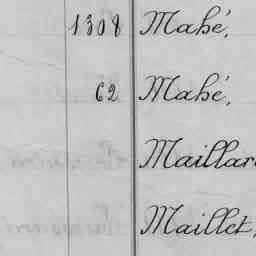 1308 Mahé,
62 Mahé,
Maillar
Maillet,